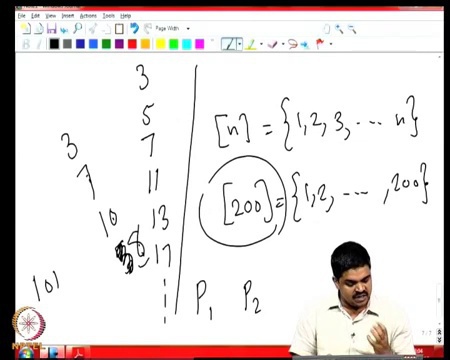 File Edit View Insert Actions Tools Help
Page Width
B
3
5
7
11
13
17
3
7
10
8
101
[n] = {1, 2, 3, ... n}
[200] = {1, 2, ..., 200}
P1 P2
NPTEL